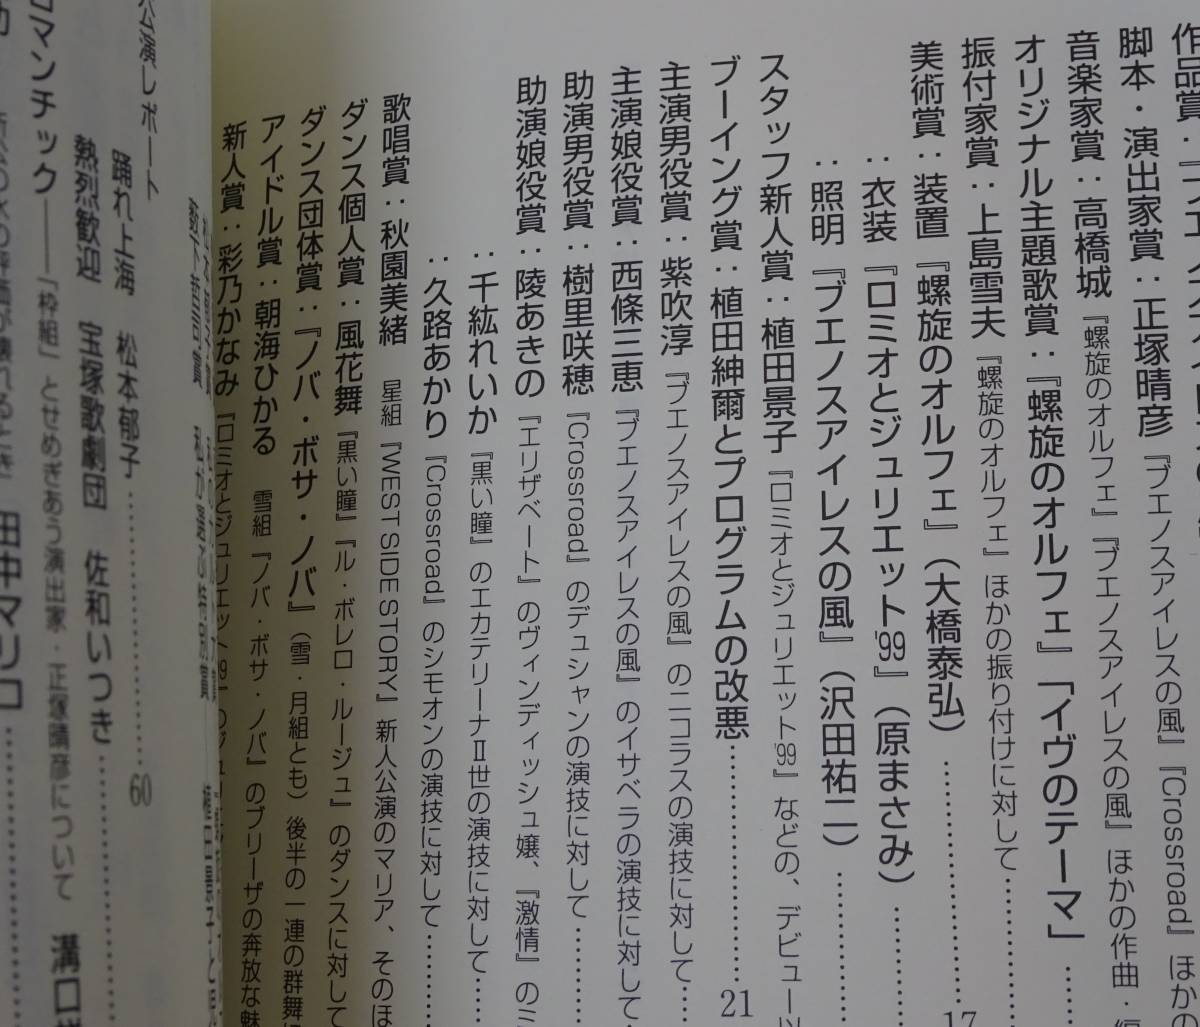 作品賞：『ブエノスアイレスの
脚本・演出家賞：正塚晴彦『ブエノスアイレスの風』『Crossroad』ほかの
音楽家賞：高橋城『螺旋のオルフェ』『ブエノスアイレスの風』ほかの作曲・編
オリジナル主題歌賞：『螺旋のオルフェ』「イヴのテーマ」……
振付家賞：上島雪夫『螺旋のオルフェ』ほかの振り付けに対して……………
美術賞：装置『螺旋のオルフェ』（大橋泰弘）……………17
：衣装『ロミオとジュリエット'99』（原まさみ）……………
：照明『ブエノスアイレスの風』（沢田祐二）……………
スタッフ新人賞：植田景子『ロミオとジュリエット'99』などの、デビュー以
ブーイング賞：植田紳爾とプログラムの改悪……………21
主演男役賞：紫吹淳『ブエノスアイレスの風』のニコラスの演技に対して……
主演娘役賞：西條三恵『ブエノスアイレスの風』のイサベラの演技に対して…
助演男役賞：樹里咲穂『Crossroad』のデュシャンの演技に対して…………
助演娘役賞：陵あきの『エリザベート』のヴィンディッシュ嬢、『激情』のミ
：千紘れいか『黒い瞳』のエカテリーナⅡ世の演技に対して……
：久路あかり『Crossroad』のシモオンの演技に対して………
歌唱賞：秋園美緒　星組『WEST SIDE STORY』新人公演のマリア、そのほ
ダンス個人賞：風花舞『黒い瞳』『ル・ボレロ・ルージュ』のダンスに対して
ダンス団体賞：『ノバ・ボサ・ノバ』（雪・月組とも）後半の一連の群舞に
アイドル賞：朝海ひかる　雪組『ノバ・ボサ・ノバ』のブリーザの奔放な魅
新人賞：彩乃かなみ『ロミオとジュリエット'99』のジュリ
薮下哲司賞　私が選ぶ特別賞
公演レポート
踊れ上海　松本郁子……………60
熱烈歓迎　宝塚歌劇団　佐和いつき……………
ロマンチック――「枠組」とせめぎあう演出家・正塚晴彦について　溝口
の評価が壊れるとき」田中マリコ……………